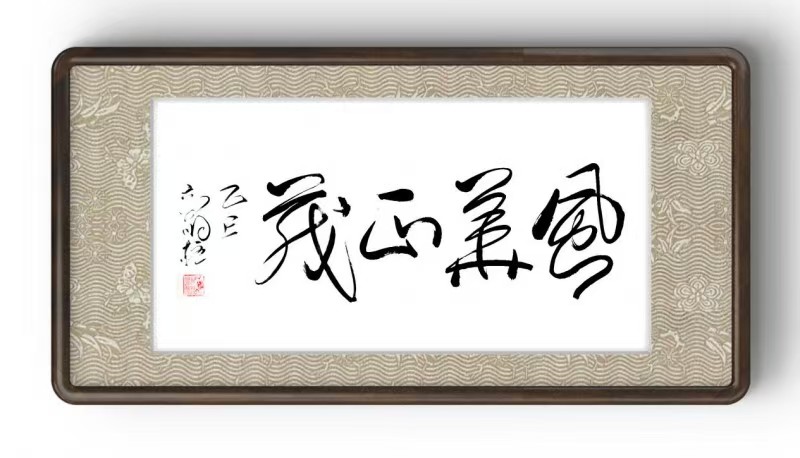 風華正茂
乙巳